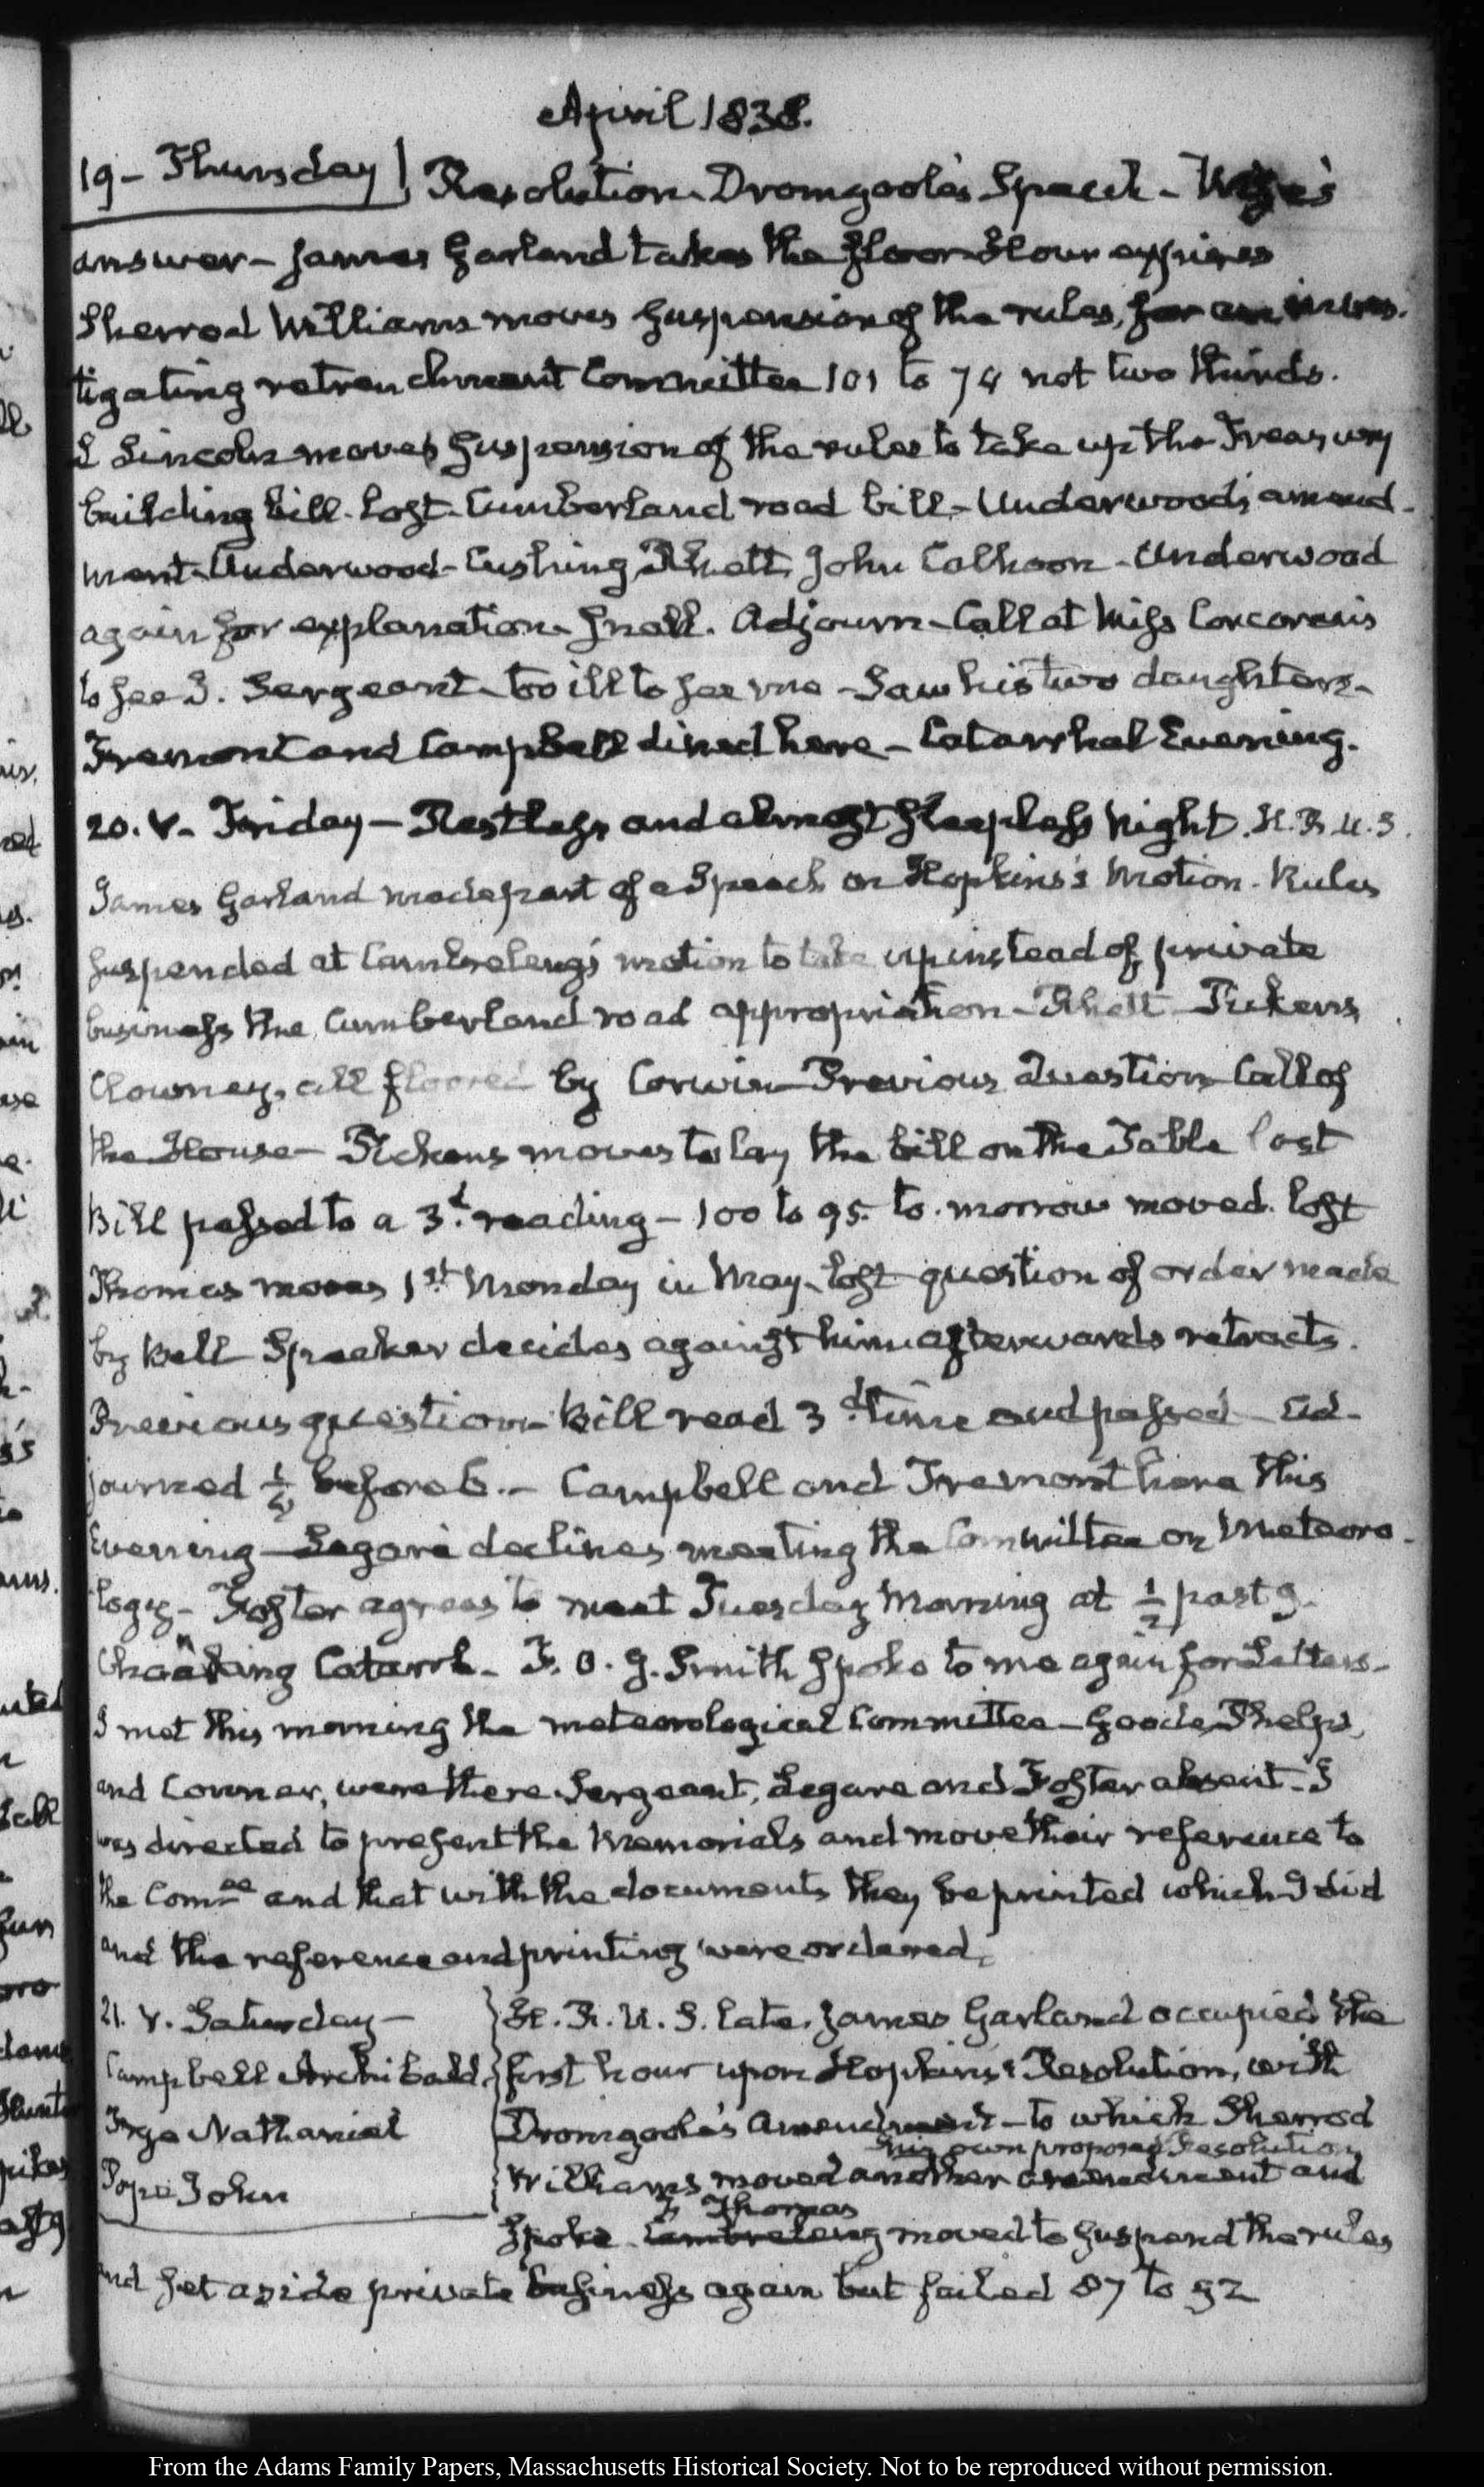 April 1838.
19 – Thursday | Resolution – Dromgoole's Speech – Wise's
answer – James Garland takes the floor – Hour expires
Sherrod Williams moves suspension of the rules, for an inves-
tigating retrenchment Committee 101 to 74 not two thirds.
L Lincoln moves suspension of the rules to take up the Treasury
building bill – lost – Cumberland road bill – Underwood's amend-
ment – Underwood – Cushing, Rhett, John Calhoon – Underwood
again for explanation – Snell. Adjourn – Call at Miss Corcoran's
to see J. Sergeant – too ill to see me – Saw his two daughters –
Fremont and Campbell dined here – Catarrhal Evening.
20. V. Friday – Restless and almost sleepless Night. H.R.U.S.
James Garland made part of a Speech on Hopkins's Motion. Rules
suspended at Cambreleng's motion to take up instead of private
business the Cumberland road appropriation – Rhett – Pickens,
Clowney, all floored by Corwin – Previous Question – Call of
the House – Pickens moves to lay the bill on the Table lost
Bill passed to a 3.d reading – 100 to 95. to-morrow moved. lost
Thomas moves 1st Monday in May – lost question of order made
by Bell Speaker decides against him afterwards retracts.
Previous question – Bill read 3d time and passed – Ad-
journed ½ before 6. – Campbell and Fremont here this
Evening – Legaré declines meeting the Committee on Meteoro-
logy – Foster agrees to meet Tuesday Morning at ½ past 9.
Catarrh – F. O. J. Smith spoke to me again for Letters –
I met this morning the meteorological Committee – Goode, Phelps,
and Connor, were there. Sergeant, Legare and Foster absent – I
was directed to present the Memorials and move their reference to
the Comee and that with the documents they be printed which I did
and the reference and printing were ordered.
21. V. Saturday –
Campbell Archibald
Frye Nathaniel
Pope John
H.R.U.S. late. James Garland occupied the
first hour upon Hopkins's Resolution, with
Dromgoole's amendment – to which Sherrod
his own proposed Resolution
Williams moved another amendment and
F. Thomas
spoke. Cambreleng moved to suspend the rules
and set aside private business again but failed 87 to 52
From the Adams Family Papers, Massachusetts Historical Society. Not to be reproduced without permission.